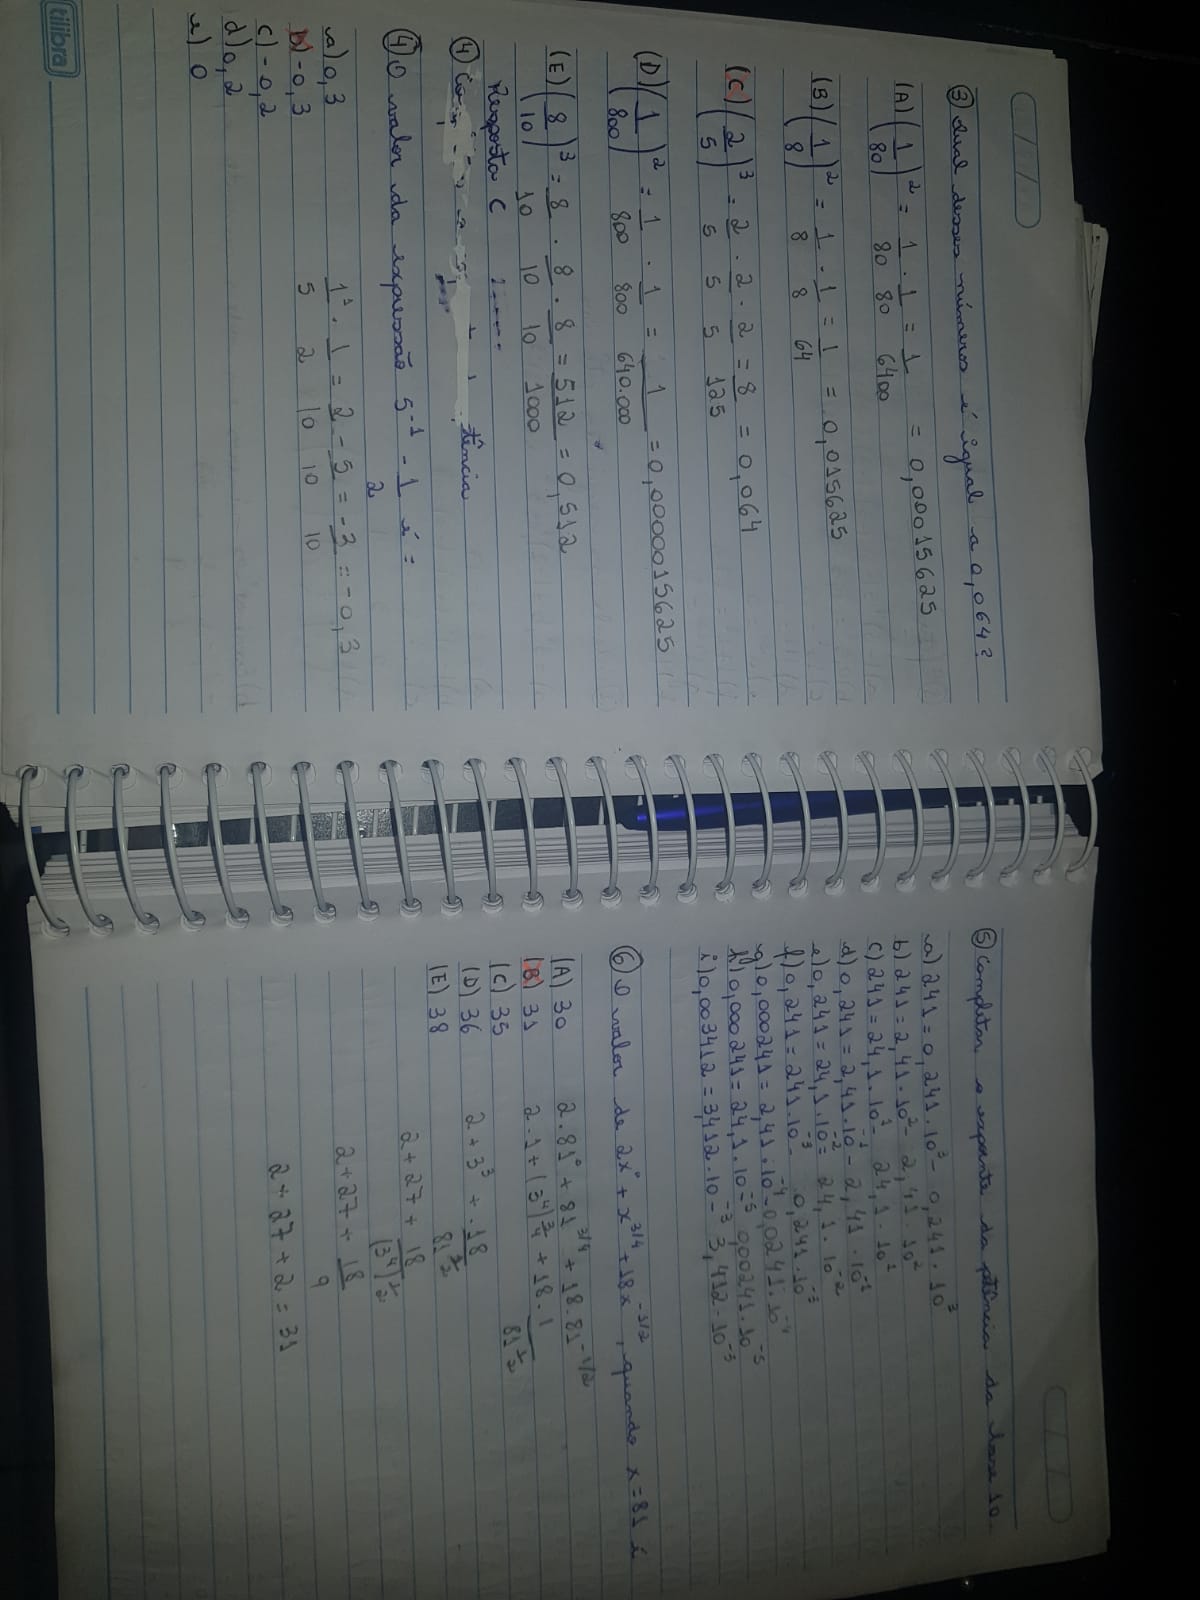 ③ Qual desses números é igual a 0,064?
(A) (1/80)² = 1/80 . 1/80 = 1/6400 = 0,00015625
(B) (1/8)² = 1/8 . 1/8 = 1/64 = 0,015625
(C) (2/5)³ = 2/5 . 2/5 . 2/5 = 8/125 = 0,064
(D) (1/800)² = 1/800 . 1/800 = 1/640.000 = 0,0000015625
(E) (8/10)³ = 8/10 . 8/10 . 8/10 = 512/1000 = 0,512
Resposta C
④ tência
④ O valor da expressão 5⁻¹ - 1/2 é =
a) 0,3 1¹/5 . 1/2 = 2/10 - 5/10 = -3/10 = -0,3
b) -0,3
c) -0,2
d) 0,2
e) 0
tilibra
⑤ Completar o expoente da potência da base 10.
a) 241 = 0,241 . 10³ - 0,241 . 10³
b) 241 = 2,41 . 10² - 2,41 . 10²
c) 241 = 24,1 . 10¹ - 24,1 . 10¹
d) 0,241 = 2,41 . 10⁻¹ - 2,41 . 10⁻¹
e) 0,241 = 24,1 . 10⁻² = 24,1 . 10⁻²
f) 0,241 = 241 . 10⁻³ - 0,241 . 10⁻³
g) 0,000241 = 2,41 . 10⁻⁴ - 0,0241 . 10⁻⁴
h) 0,000241 = 24,1 . 10⁻⁵ 0,00241 . 10⁻⁵
i) 0,003412 = 3,412 . 10⁻³ - 3,412 . 10⁻³
⑥ O valor de 2x⁰ + x^3/4 + 18x^-1/2, quando x = 81 é
(A) 30 2 . 81⁰ + 81^3/4 + 18 . 81^-1/2
(B) 31 2 . 1 + (3⁴)^3/4 + 18 . 1/81^1/2
(C) 35
(D) 36 2 + 3³ + 18/81^1/2
(E) 38
2 + 27 + 18/(3⁴)^1/2
2 + 27 + 18/9
2 + 27 + 2 = 31